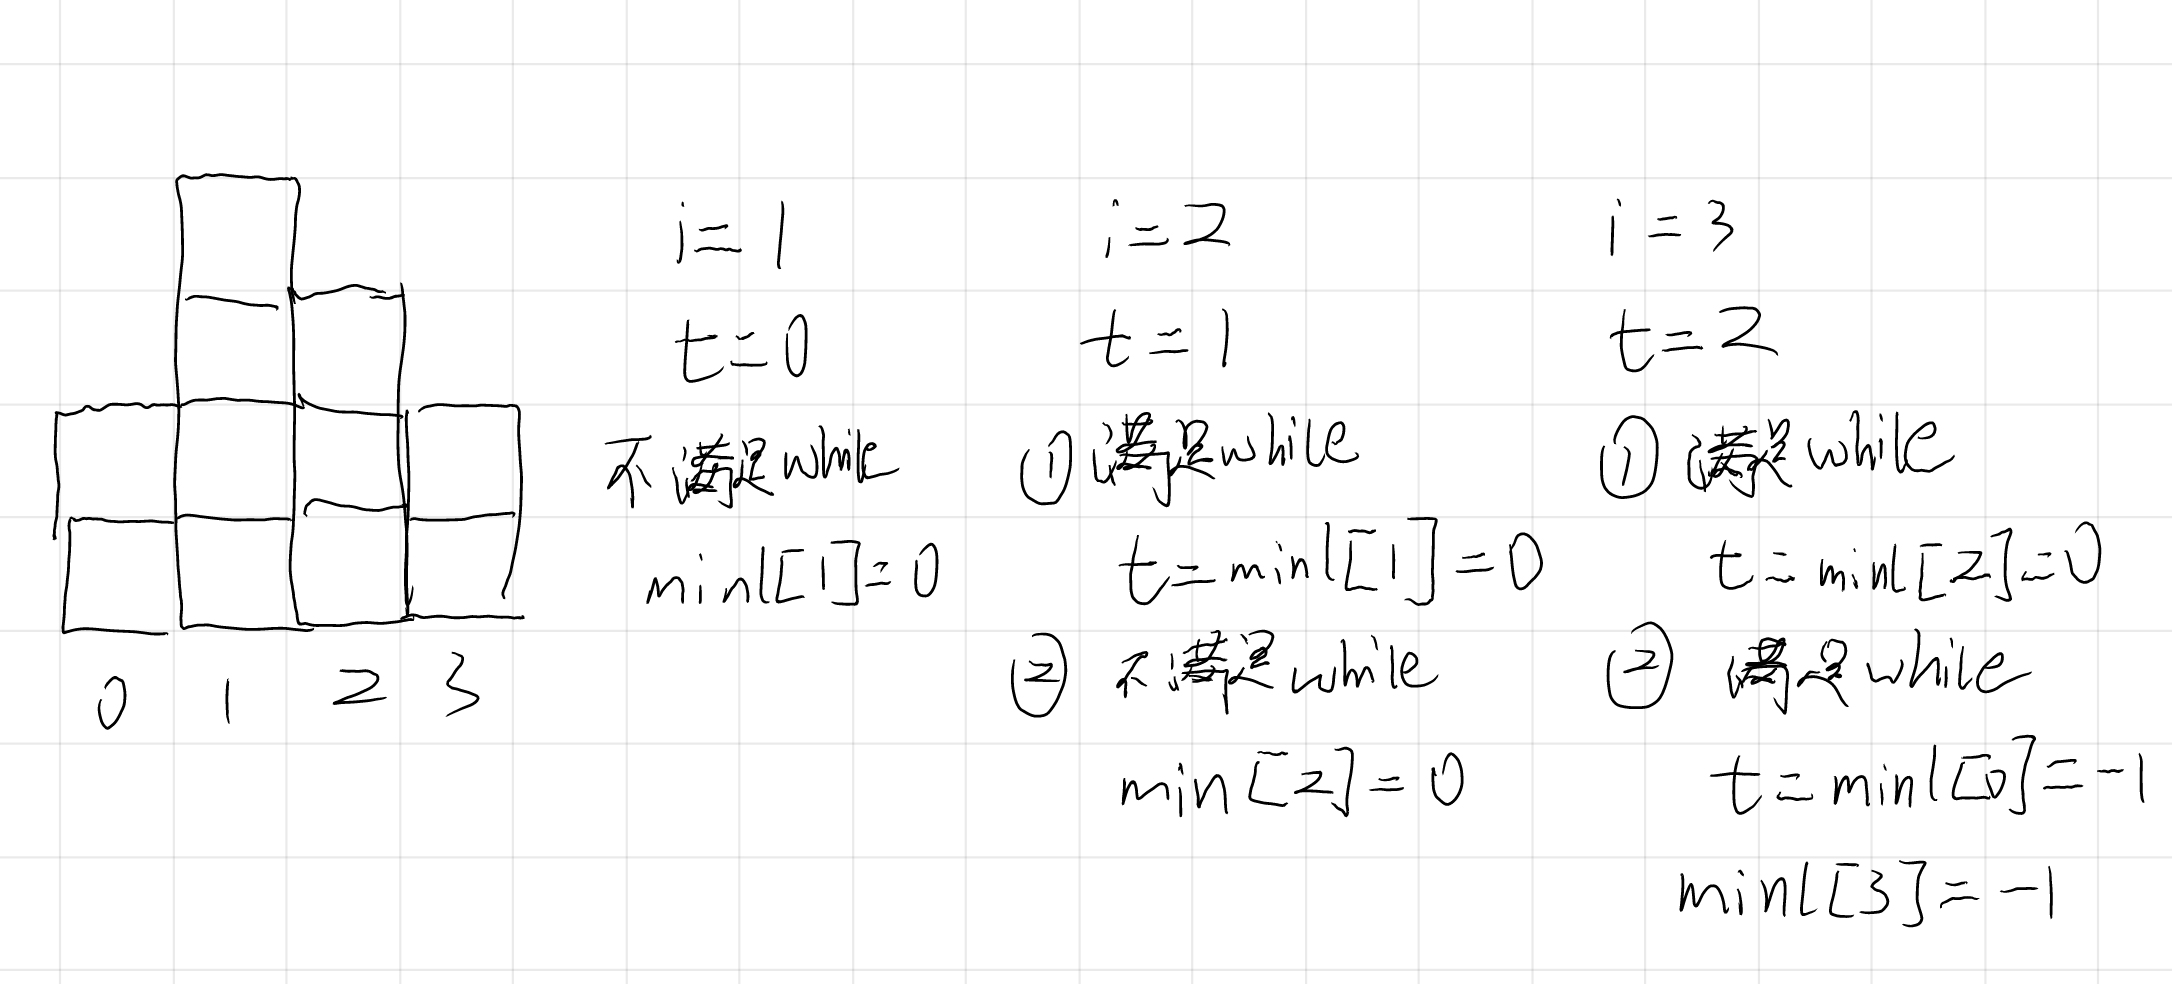 0 1 2 3
i=1
t=0
不满足while
minl[1]=0
i=2
t=1
① 满足while
t=minl[1]=0
② 不满足while
min[2]=0
i=3
t=2
① 满足while
t=minl[2]=0
② 满足while
t=minl[0]=-1
minl[3]=-1